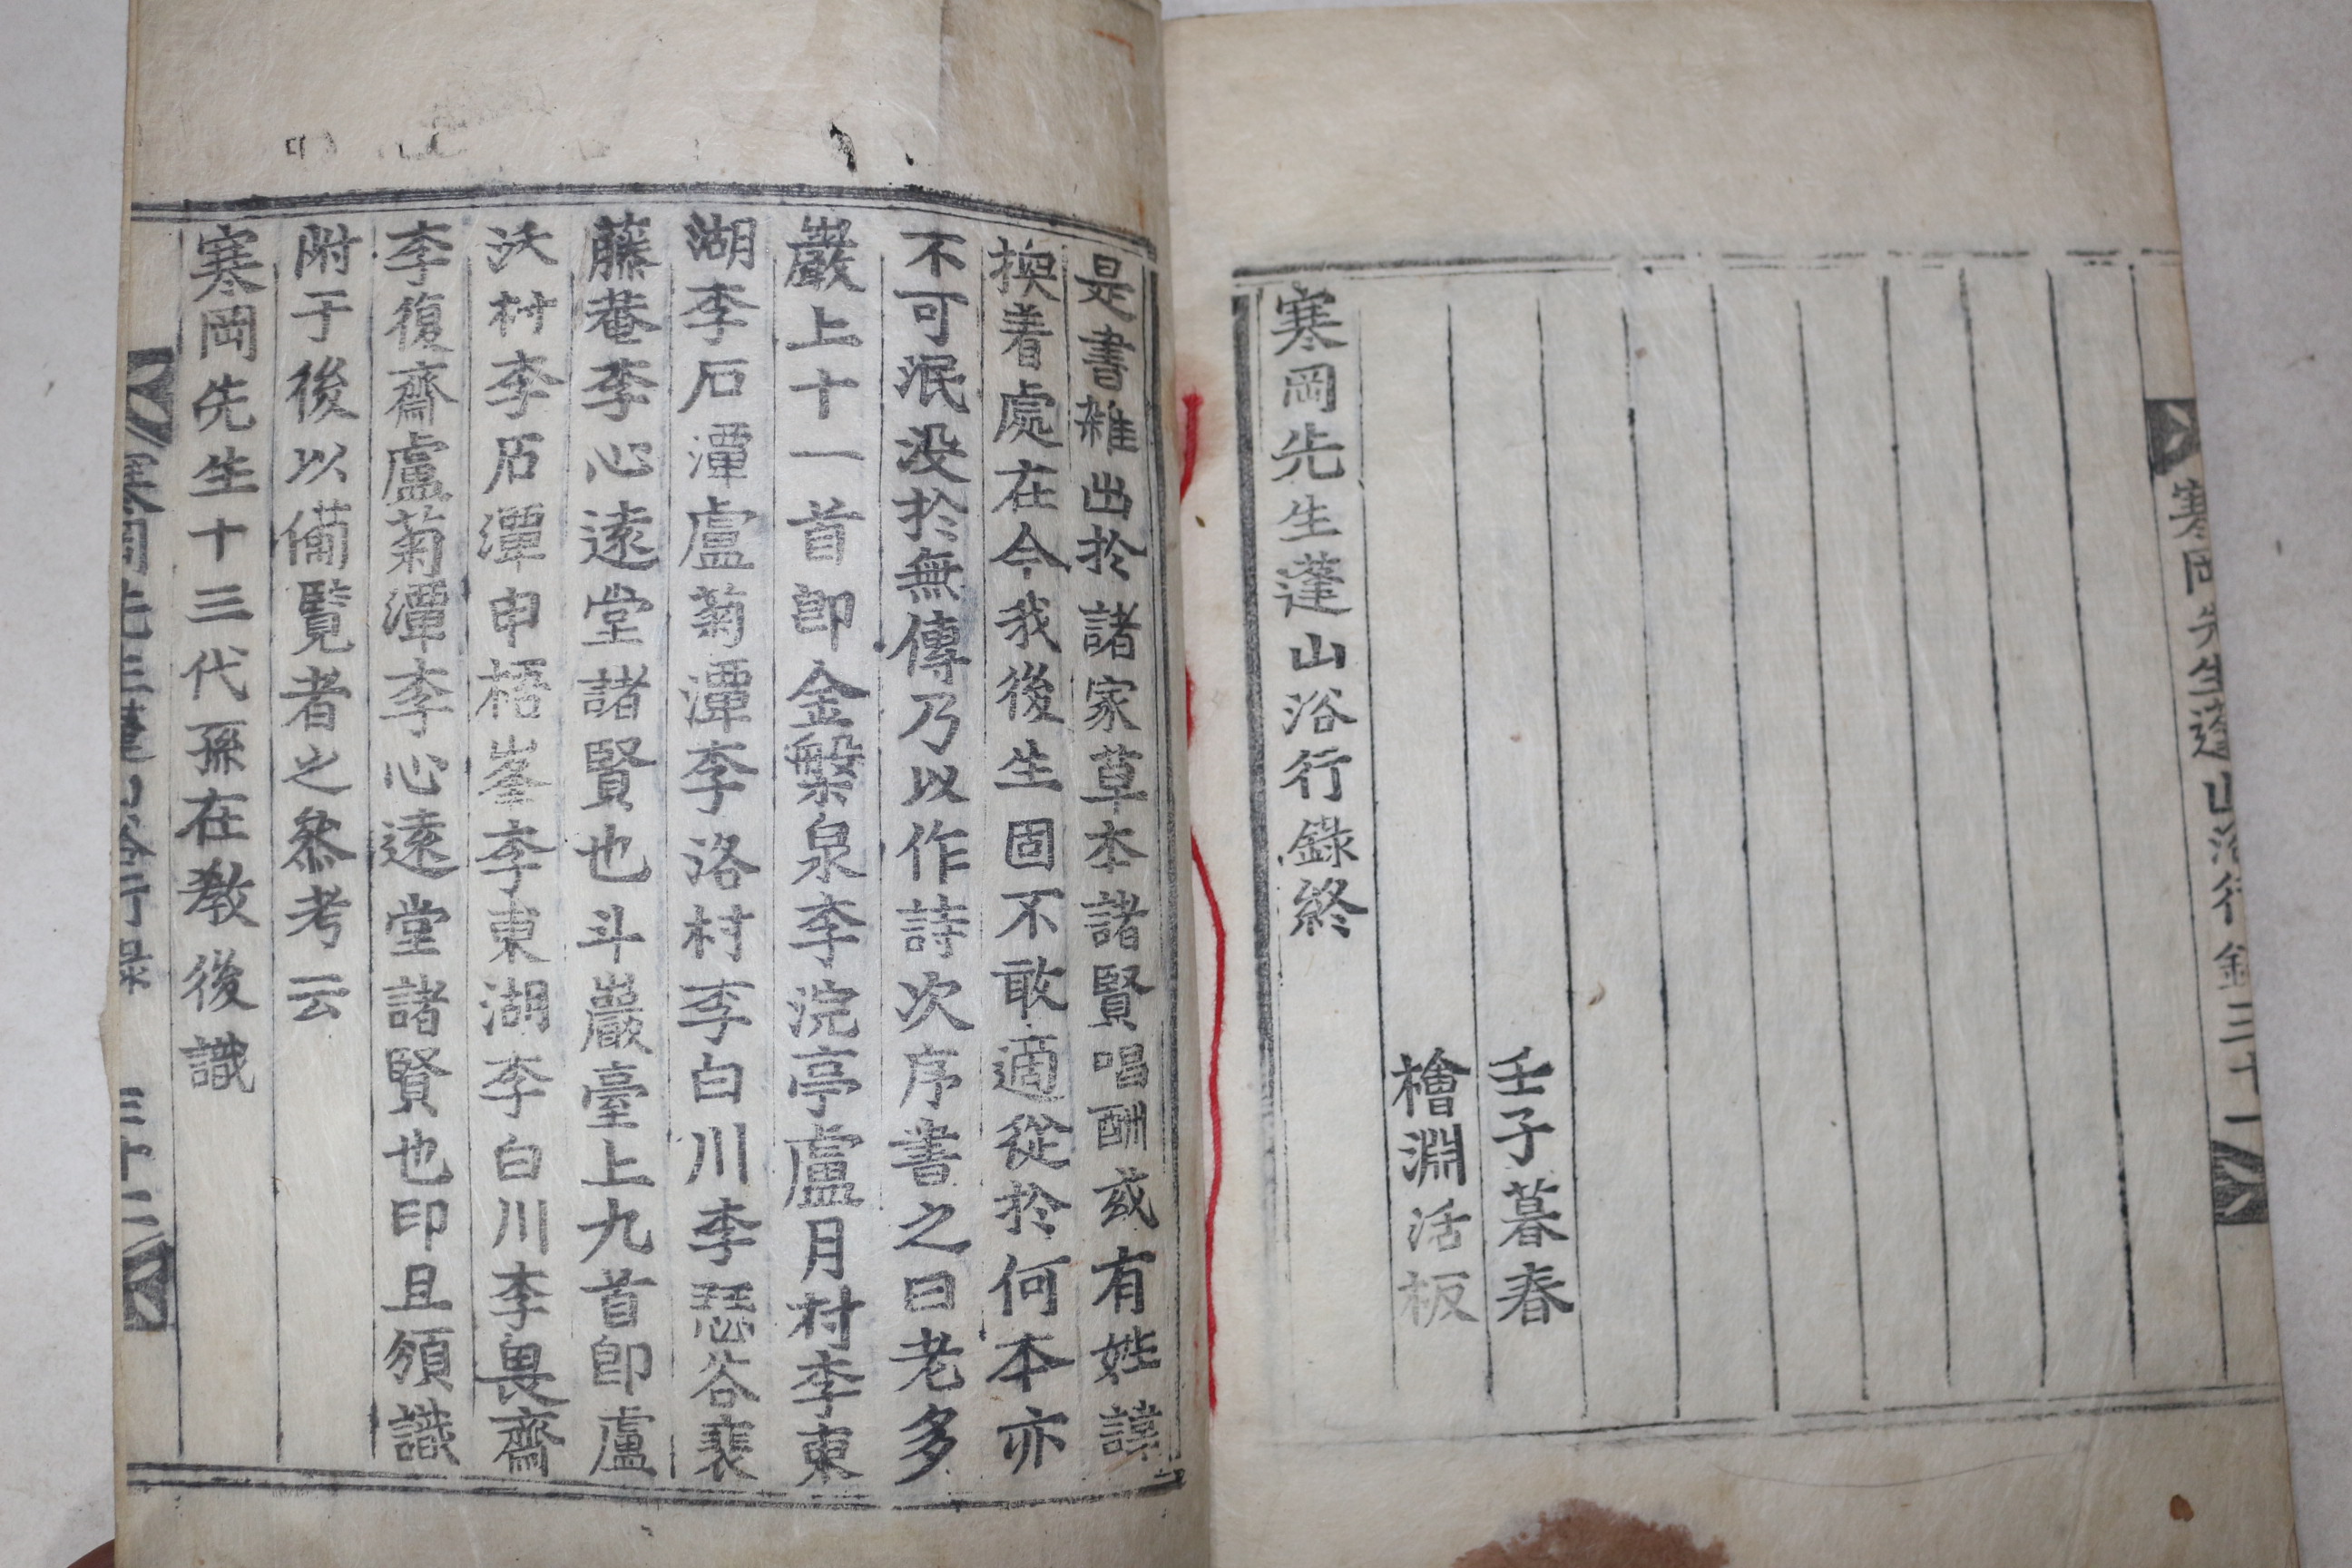 寒岡先生蓬山浴行錄 三十一
壬子暮春
檜淵活板
寒岡先生蓬山浴行錄終
是書雜出於諸家草本諸賢唱酬或有姓諱
換着處在今我後生固不敢適從於何本亦
不可泯没於無傳乃以作詩次序書之曰老多
巖上十一首卽金槃泉李浣亭盧月村李東
湖李石潭盧菊潭李洛村李白川李恐谷裵
藤菴李心遠堂諸賢也斗巖臺上九首卽盧
沃村李石潭申梧峯李東湖李白川李畏齋
李復齋盧菊潭李心遠堂諸賢也印且頒識
附于後以備覽者之叅考云
寒岡先生十三代孫在敎後識
寒岡先生蓬山浴行錄 三十二